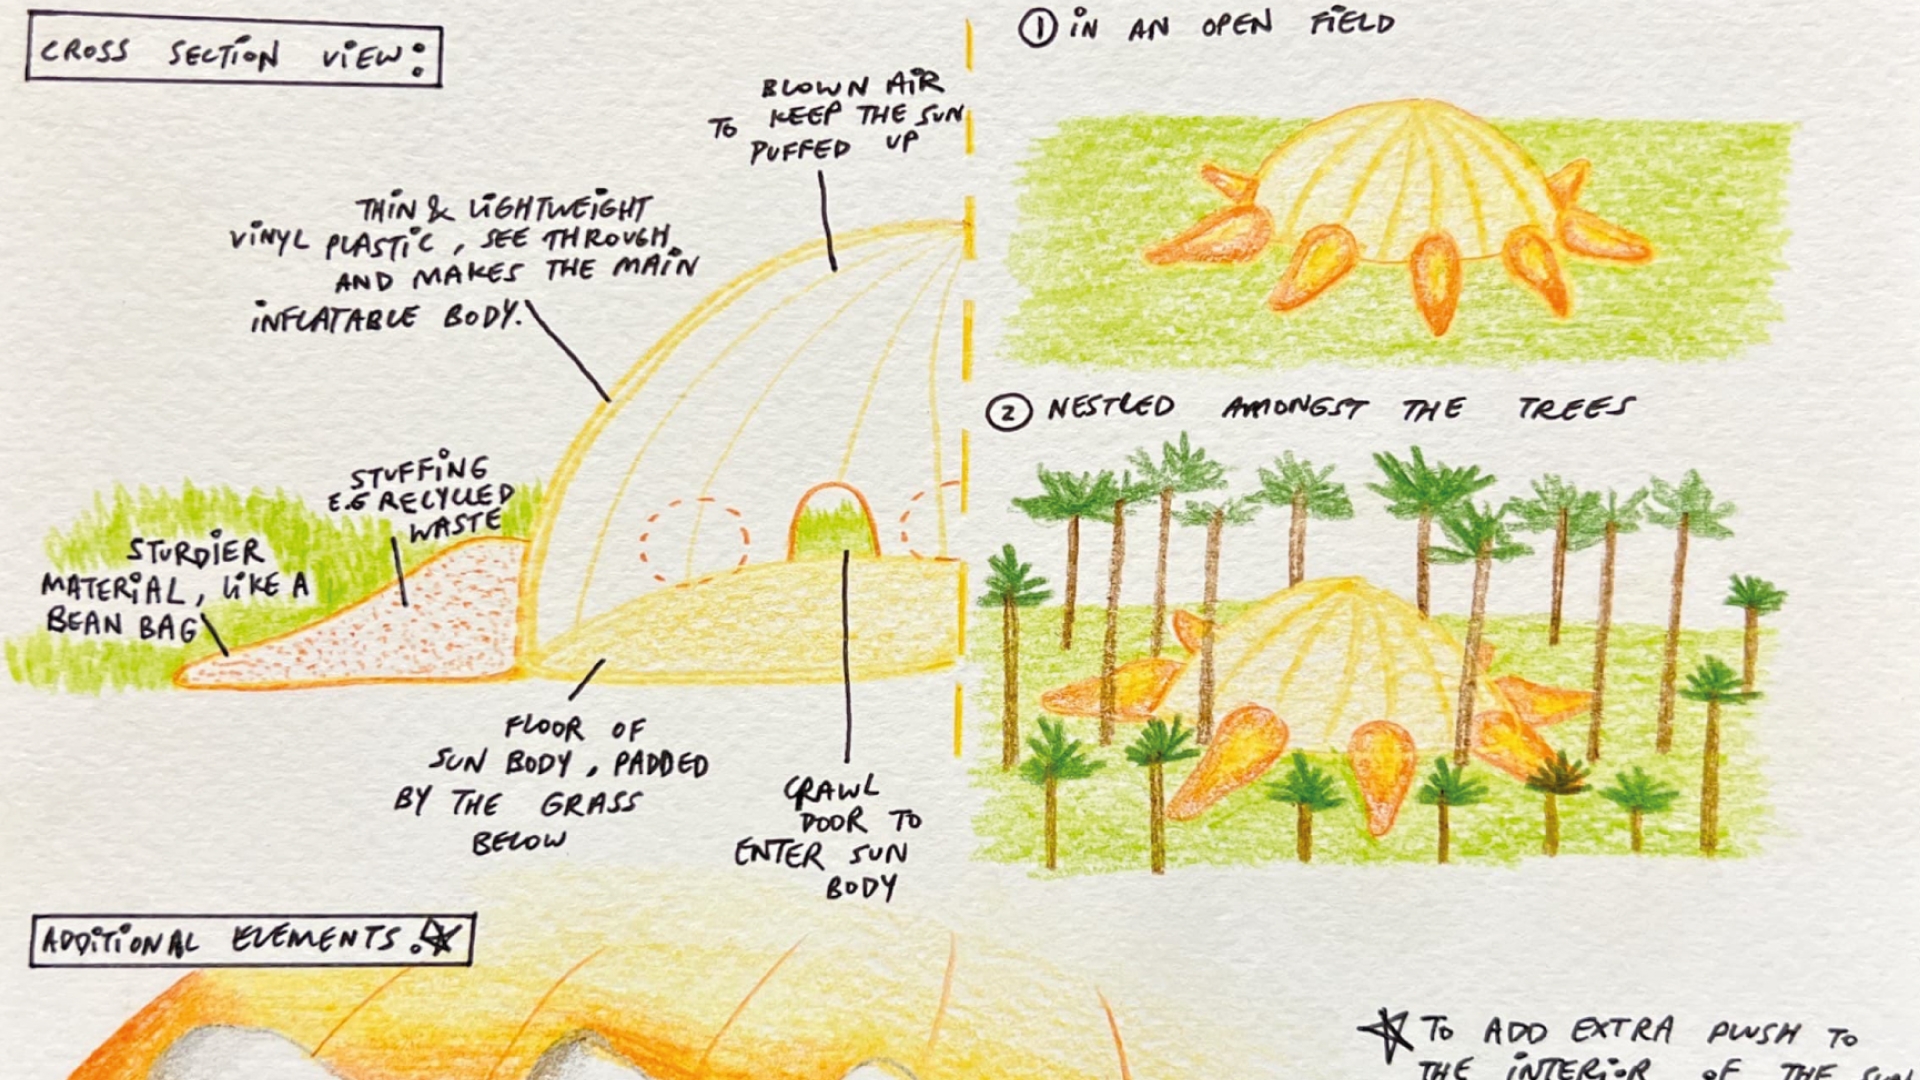 CROSS SECTION VIEW:
BLOWN AIR
TO KEEP THE SUN
PUFFED UP
THIN & LIGHTWEIGHT
VINYL PLASTIC, SEE THROUGH,
AND MAKES THE MAIN
INFLATABLE BODY.
STUFFING
E.G RECYCLED
WASTE
STURDIER
MATERIAL, LIKE A
BEAN BAG
FLOOR OF
SUN BODY, PADDED
BY THE GRASS
BELOW
CRAWL
DOOR TO
ENTER SUN
BODY
1 IN AN OPEN FIELD
2 NESTLED AMONGST THE TREES
ADDITIONAL ELEMENTS:
TO ADD EXTRA PLUSH TO
THE INTERIOR OF THE SUN